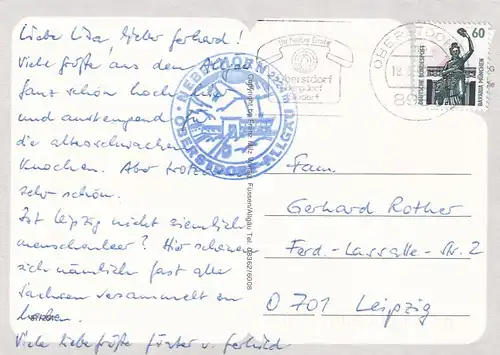 Liebe Lisa, lieber Gerhard!
Viele Grüße aus dem Allgäu
Ganz schön hoch hier
und anstrengend für
die altersschwachen
Knochen. Aber trotzdem
sehr schön.
Ist Leipzig nicht ziemlich
menschenleer? Hier scheinen
sich nämlich fast alle
Sachsen versammelt zu
haben.
Viele liebe Grüße Günter u. Gerhild
NEBELHORN 2224 m
OBERSTDORF-ALLGÄU
Oberstdorf
OBERSTDORF
18.
89
60
DEUTSCHE BUNDESPOST
BAVARIA MÜNCHEN
Füssen/Allgäu Tel. 08362/6908
Fam.
Gerhard Rother
Ferd.-Lassalle-Str. 2
O 701 Leipzig